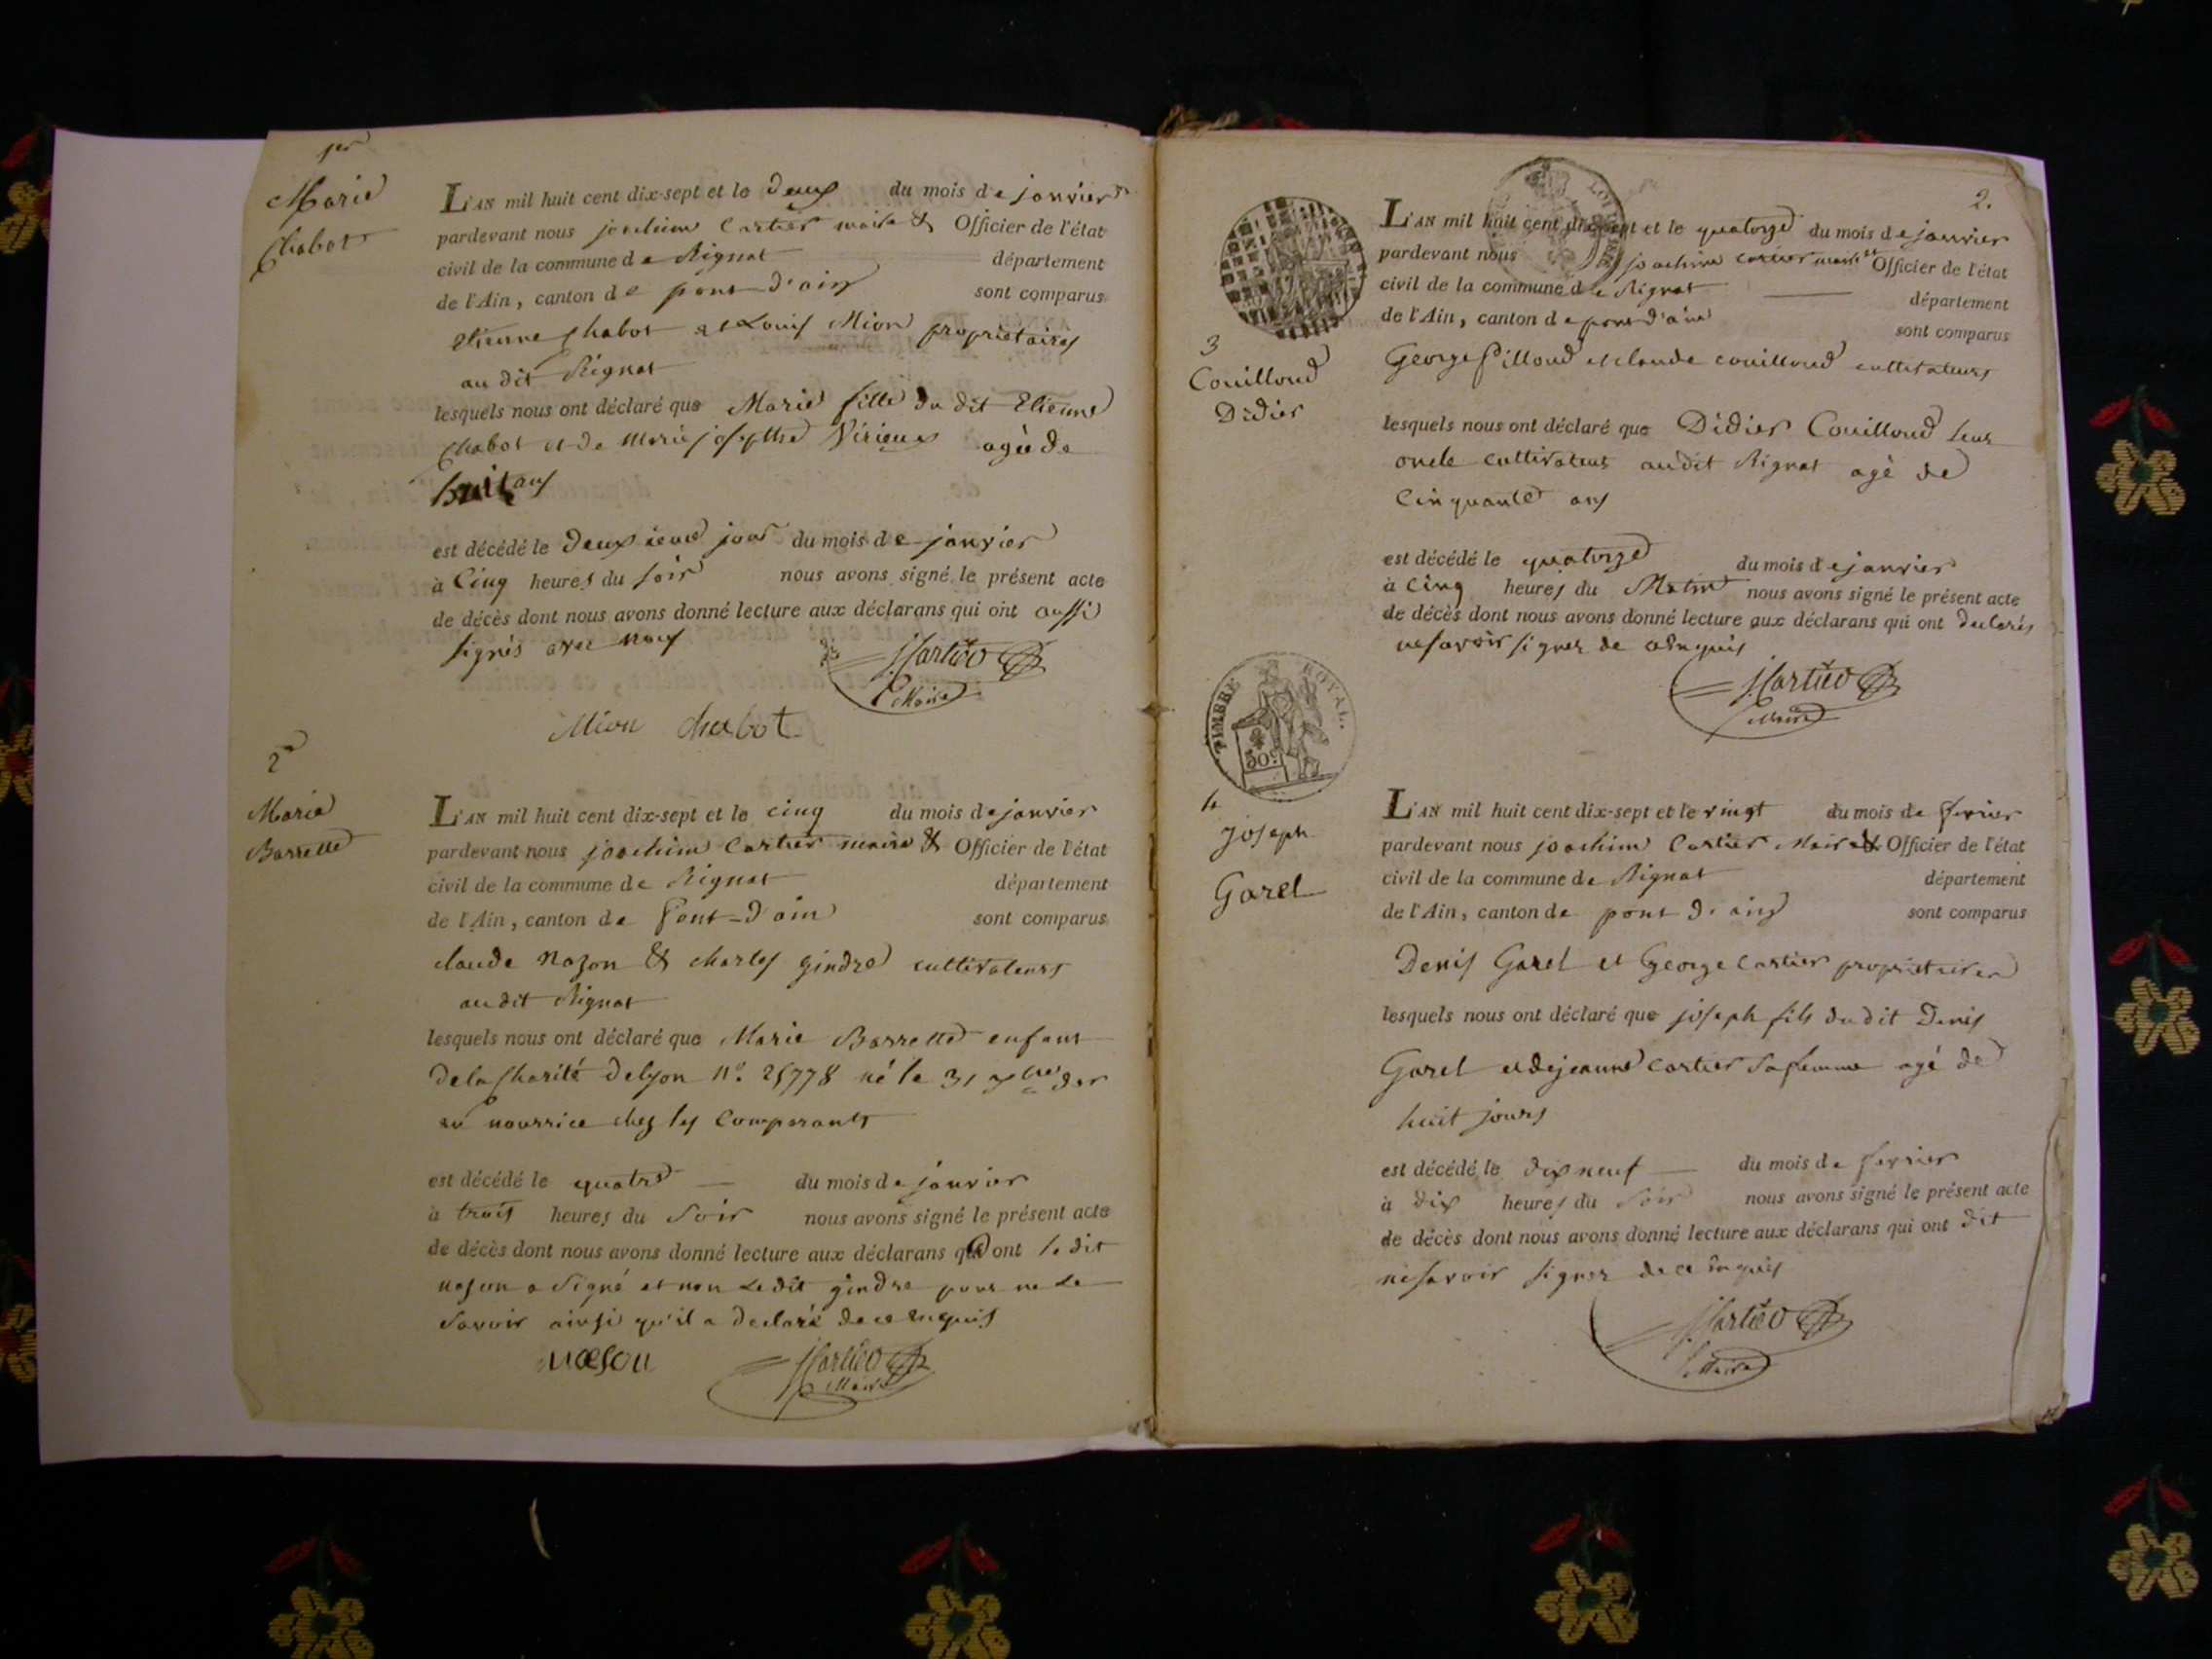 1er
Marie
Chabot
L'AN mil huit cent dix-sept et le deux du mois de janvier
pardevant nous joachim Cartier maire & Officier de l'état
civil de la commune de Rignat département
de l'Ain, canton de pont d'ain sont comparus
etienne Chabot et Louis Mion propriétaires
au dit Rignat
lesquels nous ont déclaré que Marie fille du dit Etienne
Chabot et de Marie josepthe Virieux agée de
huit ans
est décédé le deuxieme jour du mois de janvier
à Cinq heures du soir nous avons signé le présent acte
de décès dont nous avons donné lecture aux déclarans qui ont aussi
signés avec nous
J Cartier
Maire
Mion chabot
2
Marie
Barrette
L'AN mil huit cent dix-sept et le cinq du mois de janvier
pardevant nous joachim Cartier maire & Officier de l'état
civil de la commune de Rignat département
de l'Ain, canton de Pont-d'ain sont comparus
claude Nazon & charles gindre cultivateurs
au dit Rignat
lesquels nous ont déclaré que Marie Barrette enfant
de la Charité de lyon n°. 25778 né le 31 der
en nourrice chez les Comparants
est décédé le quatre du mois de janvier
à trois heures du soir nous avons signé le présent acte
de décès dont nous avons donné lecture aux déclarans qui ont le dit
nason a signé et non le dit gindre pour ne le
savoir ainsi qu'il a déclaré de ce enquis
nason J Cartier
Maire
2.
L'AN mil huit cent dix-sept et le quatorze du mois de janvier
pardevant nous joachim cartier maire et Officier de l'état
civil de la commune de Rignat département
de l'Ain, canton de pont d'ain sont comparus
3
Couilloud
Didier
George Pilloud et claude couilloud cultivateurs
lesquels nous ont déclaré que Didier Couilloud leur
oncle cultivateur audit Rignat agé de
Cinquante ans
est décédé le quatorze du mois de janvier
à cinq heures du Matin nous avons signé le présent acte
de décès dont nous avons donné lecture aux déclarans qui ont declarés
ne savoir signer de ce enquis
J Cartier
Maire
TIMBRE ROYAL.
50c
4
joseph
Garel
L'AN mil huit cent dix-sept et le vingt du mois de fevrier
pardevant nous joachim Cartier Maire & Officier de l'état
civil de la commune de Rignat département
de l'Ain, canton de pont d'ain sont comparus
Denis Garel et George Cartier propriétaires
lesquels nous ont déclaré que joseph fils du dit Denis
Garel et de jeanne Cartier sa femme agé de
huit jours
est décédé le dix neuf du mois de fevrier
à dix heures du soir nous avons signé le présent acte
de décès dont nous avons donné lecture aux déclarans qui ont dit
ne savoir signer de ce enquis
J Cartier
Maire